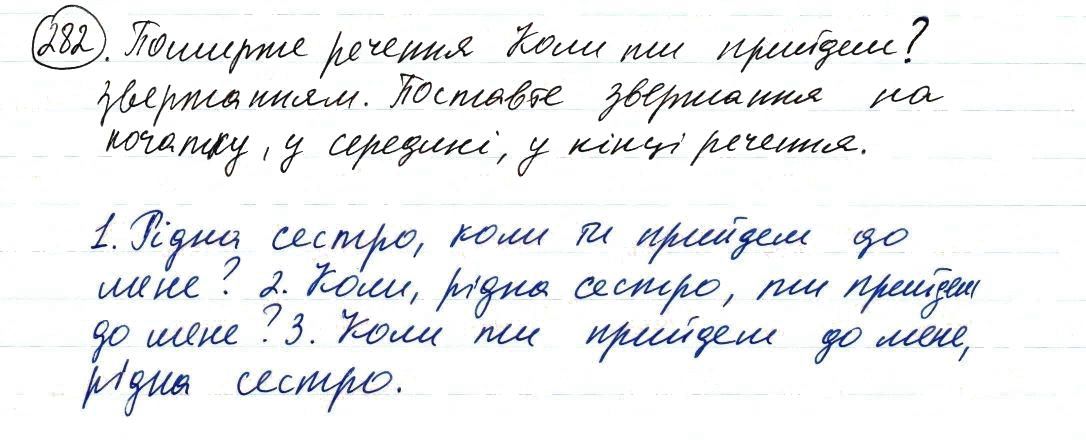 282. Поширте речення Коли ти прийдеш?
звертанням. Поставте звертання на
початку, у середині, у кінці речення.
1. Рідна сестро, коли ти прийдеш до
мене? 2. Коли, рідна сестро, ти прийдеш
до мене? 3. Коли ти прийдеш до мене,
рідна сестро.